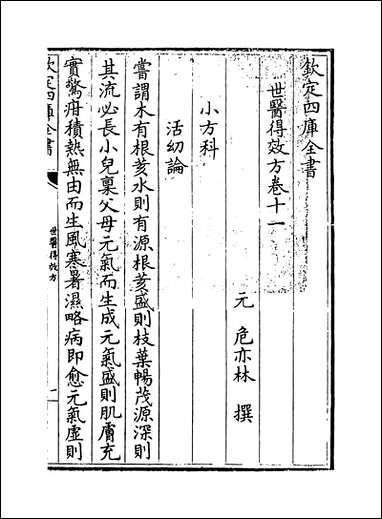 欽定四庫全書
世醫得效方卷十一
元 危亦林 撰
小方科
活幼論
嘗謂木有根荄水則有源根荄盛則枝葉暢茂源深則
其流必長小兒稟父母元氣而生成元氣盛則肌膚充
實驚疳積熱無由而生風寒暑濕略病即愈元氣虛則
欽定四庫全書
世醫得效方
一